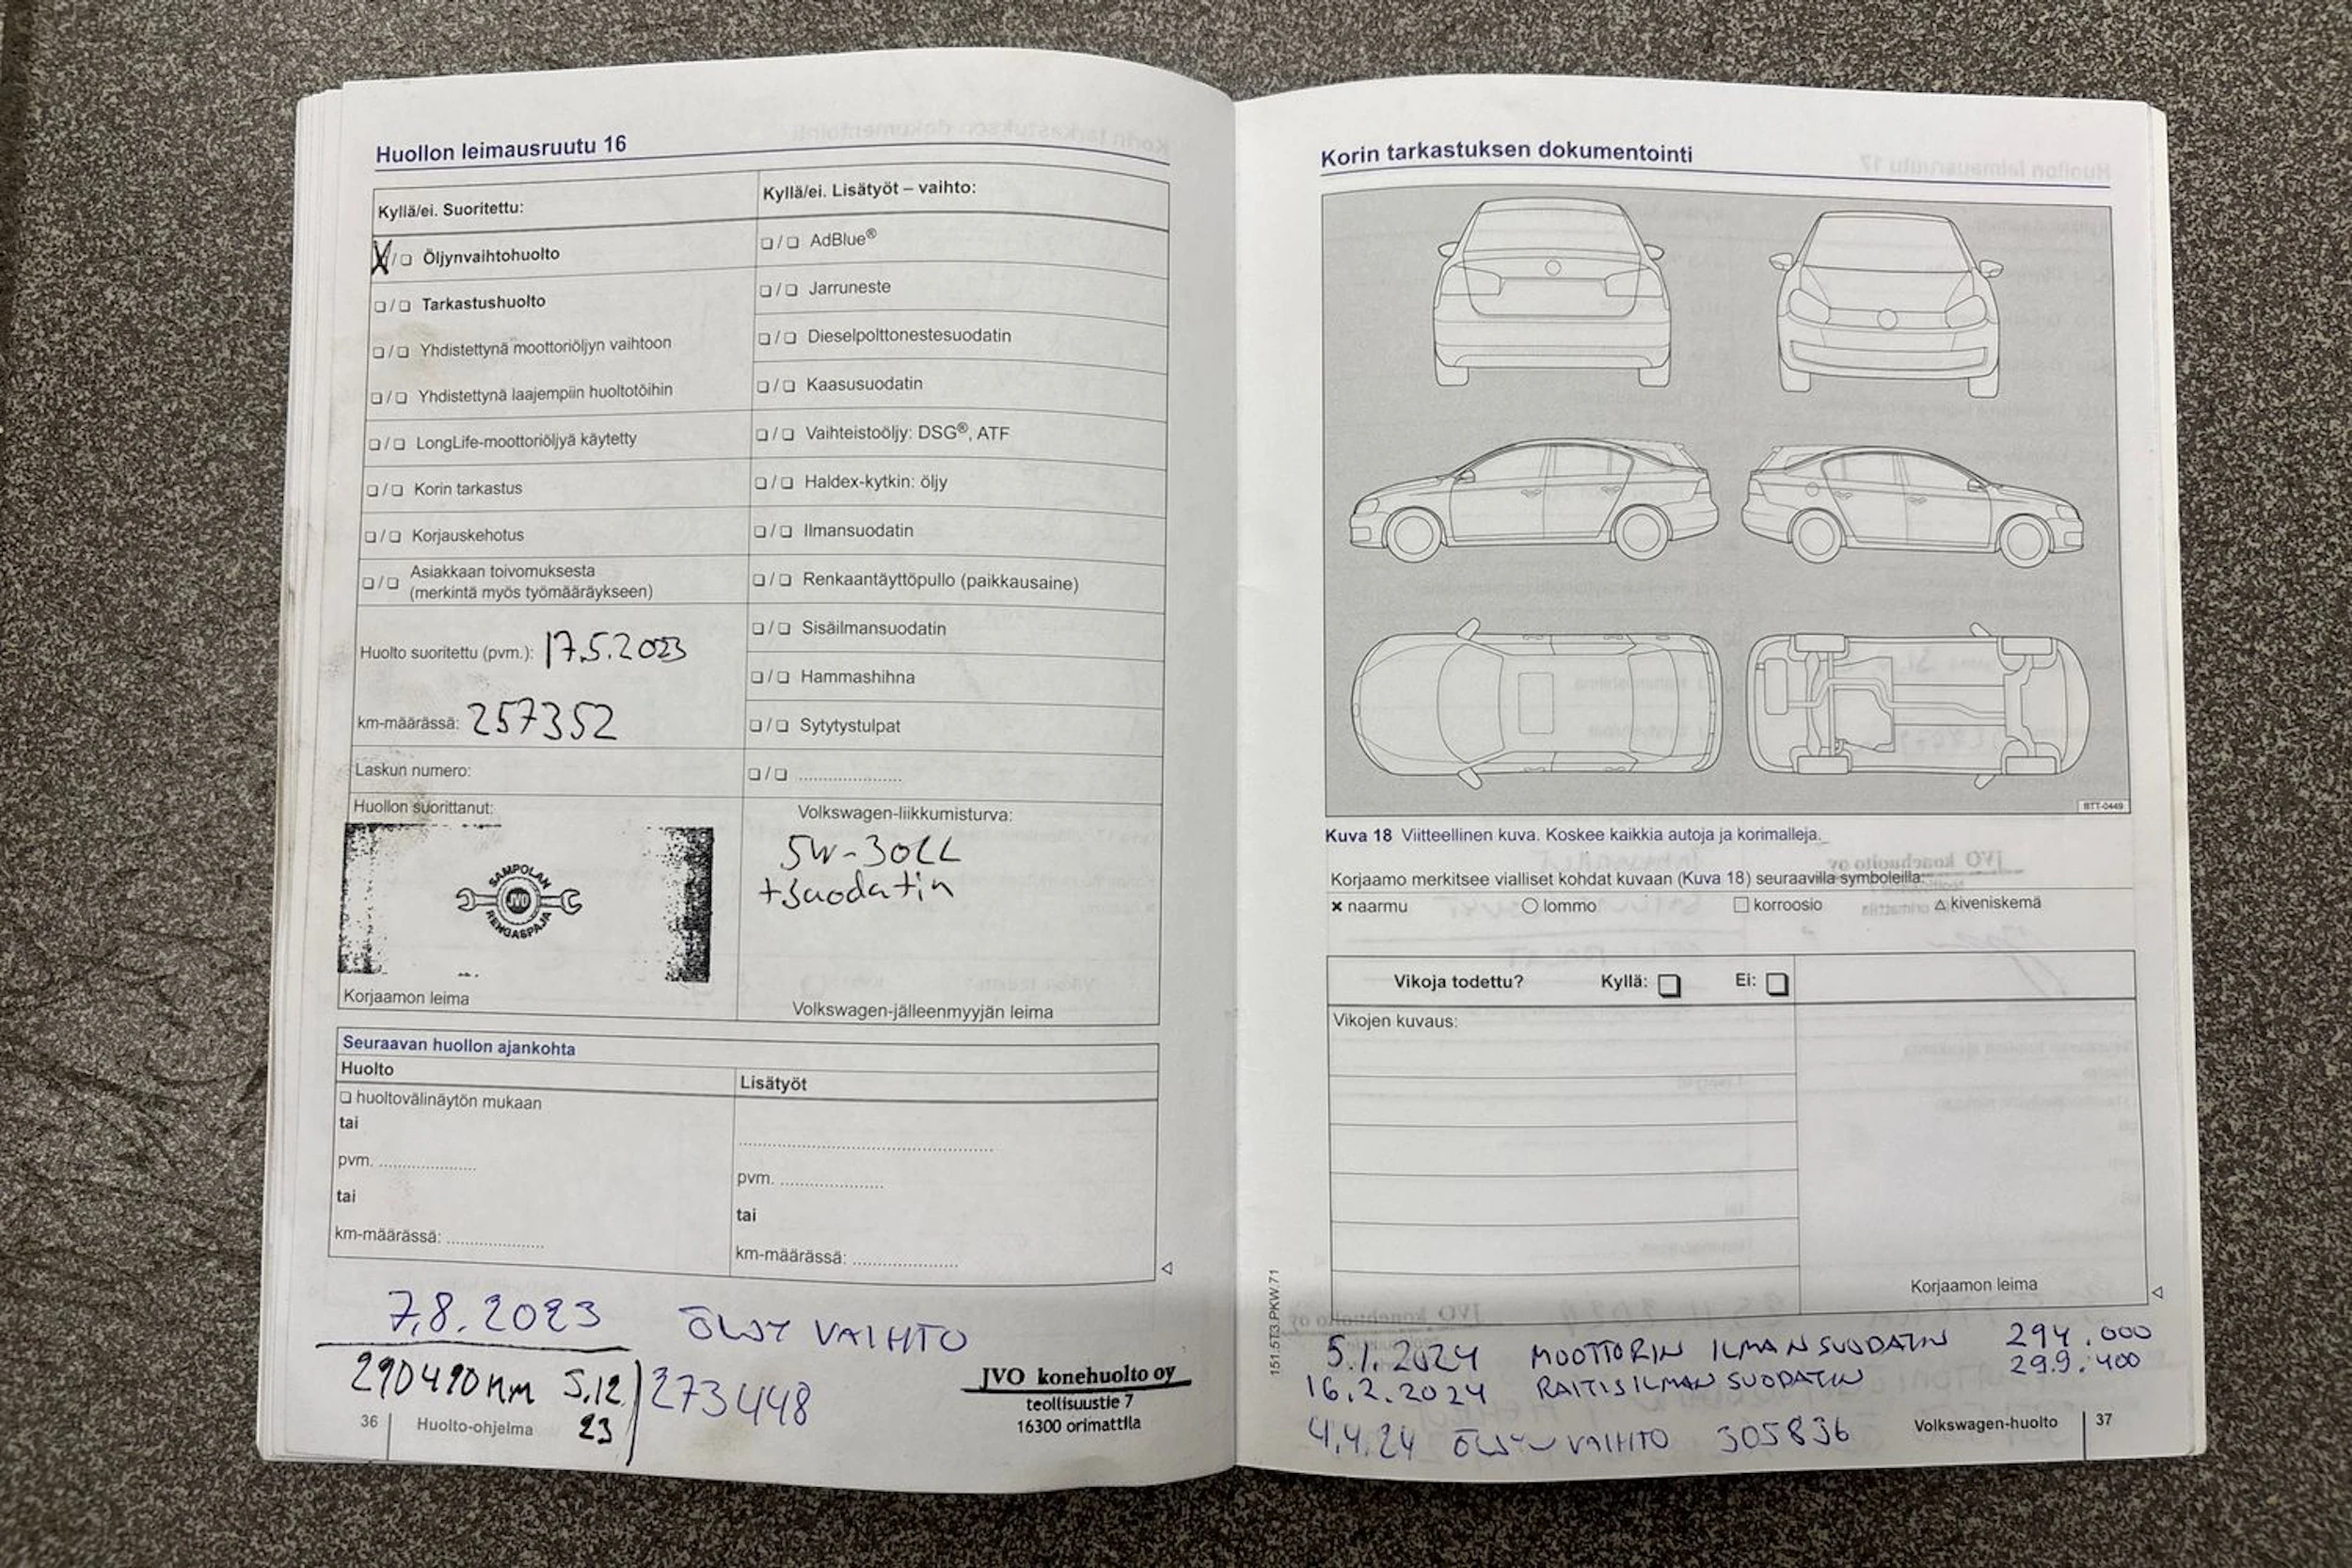 Huollon leimausruutu 16
Kyllä/ei. Suoritettu:
Öljynvaihtohuolto
Tarkastushuolto
Yhdistettynä moottoriöljyn vaihtoon
Yhdistettynä laajempiin huoltotöihin
LongLife-moottoriöljyä käytetty
Korin tarkastus
Korjauskehotus
Asiakkaan toivomuksesta
(merkintä myös työmääräykseen)
Huolto suoritettu (pvm.): 17.5.2023
km-määrässä: 257352
Laskun numero:
Huollon suorittanut:
SAMPOLAN
JVO
RENGASPAJA
Korjaamon leima
Kyllä/ei. Lisätyöt – vaihto:
AdBlue®
Jarruneste
Dieselpolttonestesuodatin
Kaasusuodatin
Vaihteistoöljy: DSG®, ATF
Haldex-kytkin: öljy
Ilmansuodatin
Renkaantäyttöpullo (paikkausaine)
Sisäilmansuodatin
Hammashihna
Sytytystulpat
Volkswagen-liikkumisturva:
5W-30LL
+suodatin
Volkswagen-jälleenmyyjän leima
Seuraavan huollon ajankohta
Huolto
huoltovälinäytön mukaan
tai
pvm.
tai
km-määrässä:
Lisätyöt
pvm.
tai
km-määrässä:
7.8.2023 ÖLJY VAIHTO
290490km 5.12. 23 273448
JVO konehuolto oy
teollisuustie 7
16300 orimattila
36 Huolto-ohjelma
Korin tarkastuksen dokumentointi
BTT-0449
Kuva 18 Viitteellinen kuva. Koskee kaikkia autoja ja korimalleja.
Korjaamo merkitsee vialliset kohdat kuvaan (Kuva 18) seuraavilla symboleilla:
× naarmu ○ lommo □ korroosio △ kiveniskemä
Vikoja todettu? Kyllä: Ei:
Vikojen kuvaus:
Korjaamon leima
151.5T3.PKW.71
5.1.2024 MOOTTORIN ILMANSUODATIN 294.000
16.2.2024 RAITISILMANSUODATIN 299.400
4.4.24 ÖLJYN VAIHTO 305836
Volkswagen-huolto 37